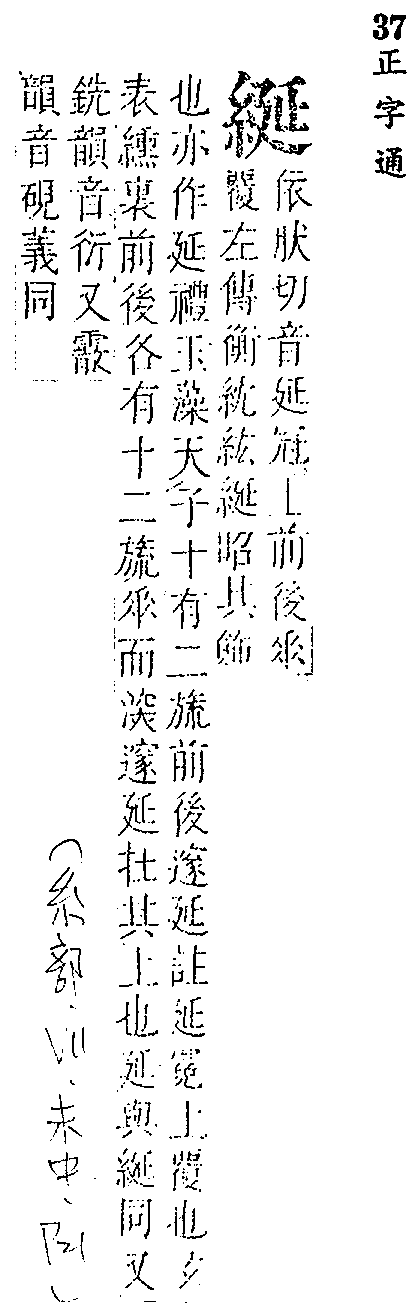 37 正字通
綖依狀切音延冠上前後垂
覆左傳衡紞紘綖昭其飾
也亦作延禮玉藻天子十有二旒前後邃延註延冕上覆也玄
表纁裏前後各有十二旒垂而深邃延在其上也延與綖同又
銑韻音衍又霰
韻音硯義同
(糸部、VII、未中、